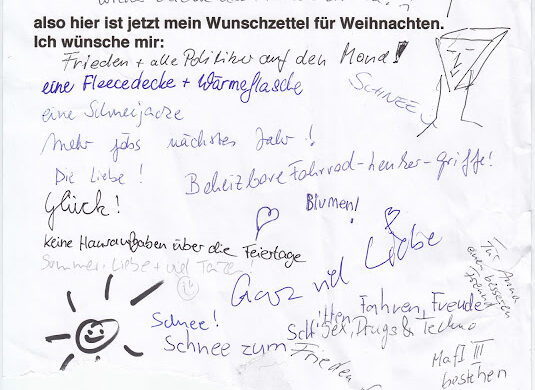 also hier ist jetzt mein Wunschzettel für Weihnachten.
Ich wünsche mir:
Frieden + alle Politiker auf den Mond!
eine Fleecedecke + Wärmeflasche
SCHNEE
eine Schneijacke
mehr jobs nächstes Jahr!
Die Liebe!
Beheizbare Fahrrad-Lenker-griffe!
Glück!
Blumen!
keine Hausaufgaben über die Feiertage
Ganz viel Liebe
Sommer, Liebe + viel
Für Anna
einen besseren
Freund
Schnee!
Schlitten Fahren, Freude
Sex, Drugs & Techno
Schnee zum
Frieden
MafI III
bestehen